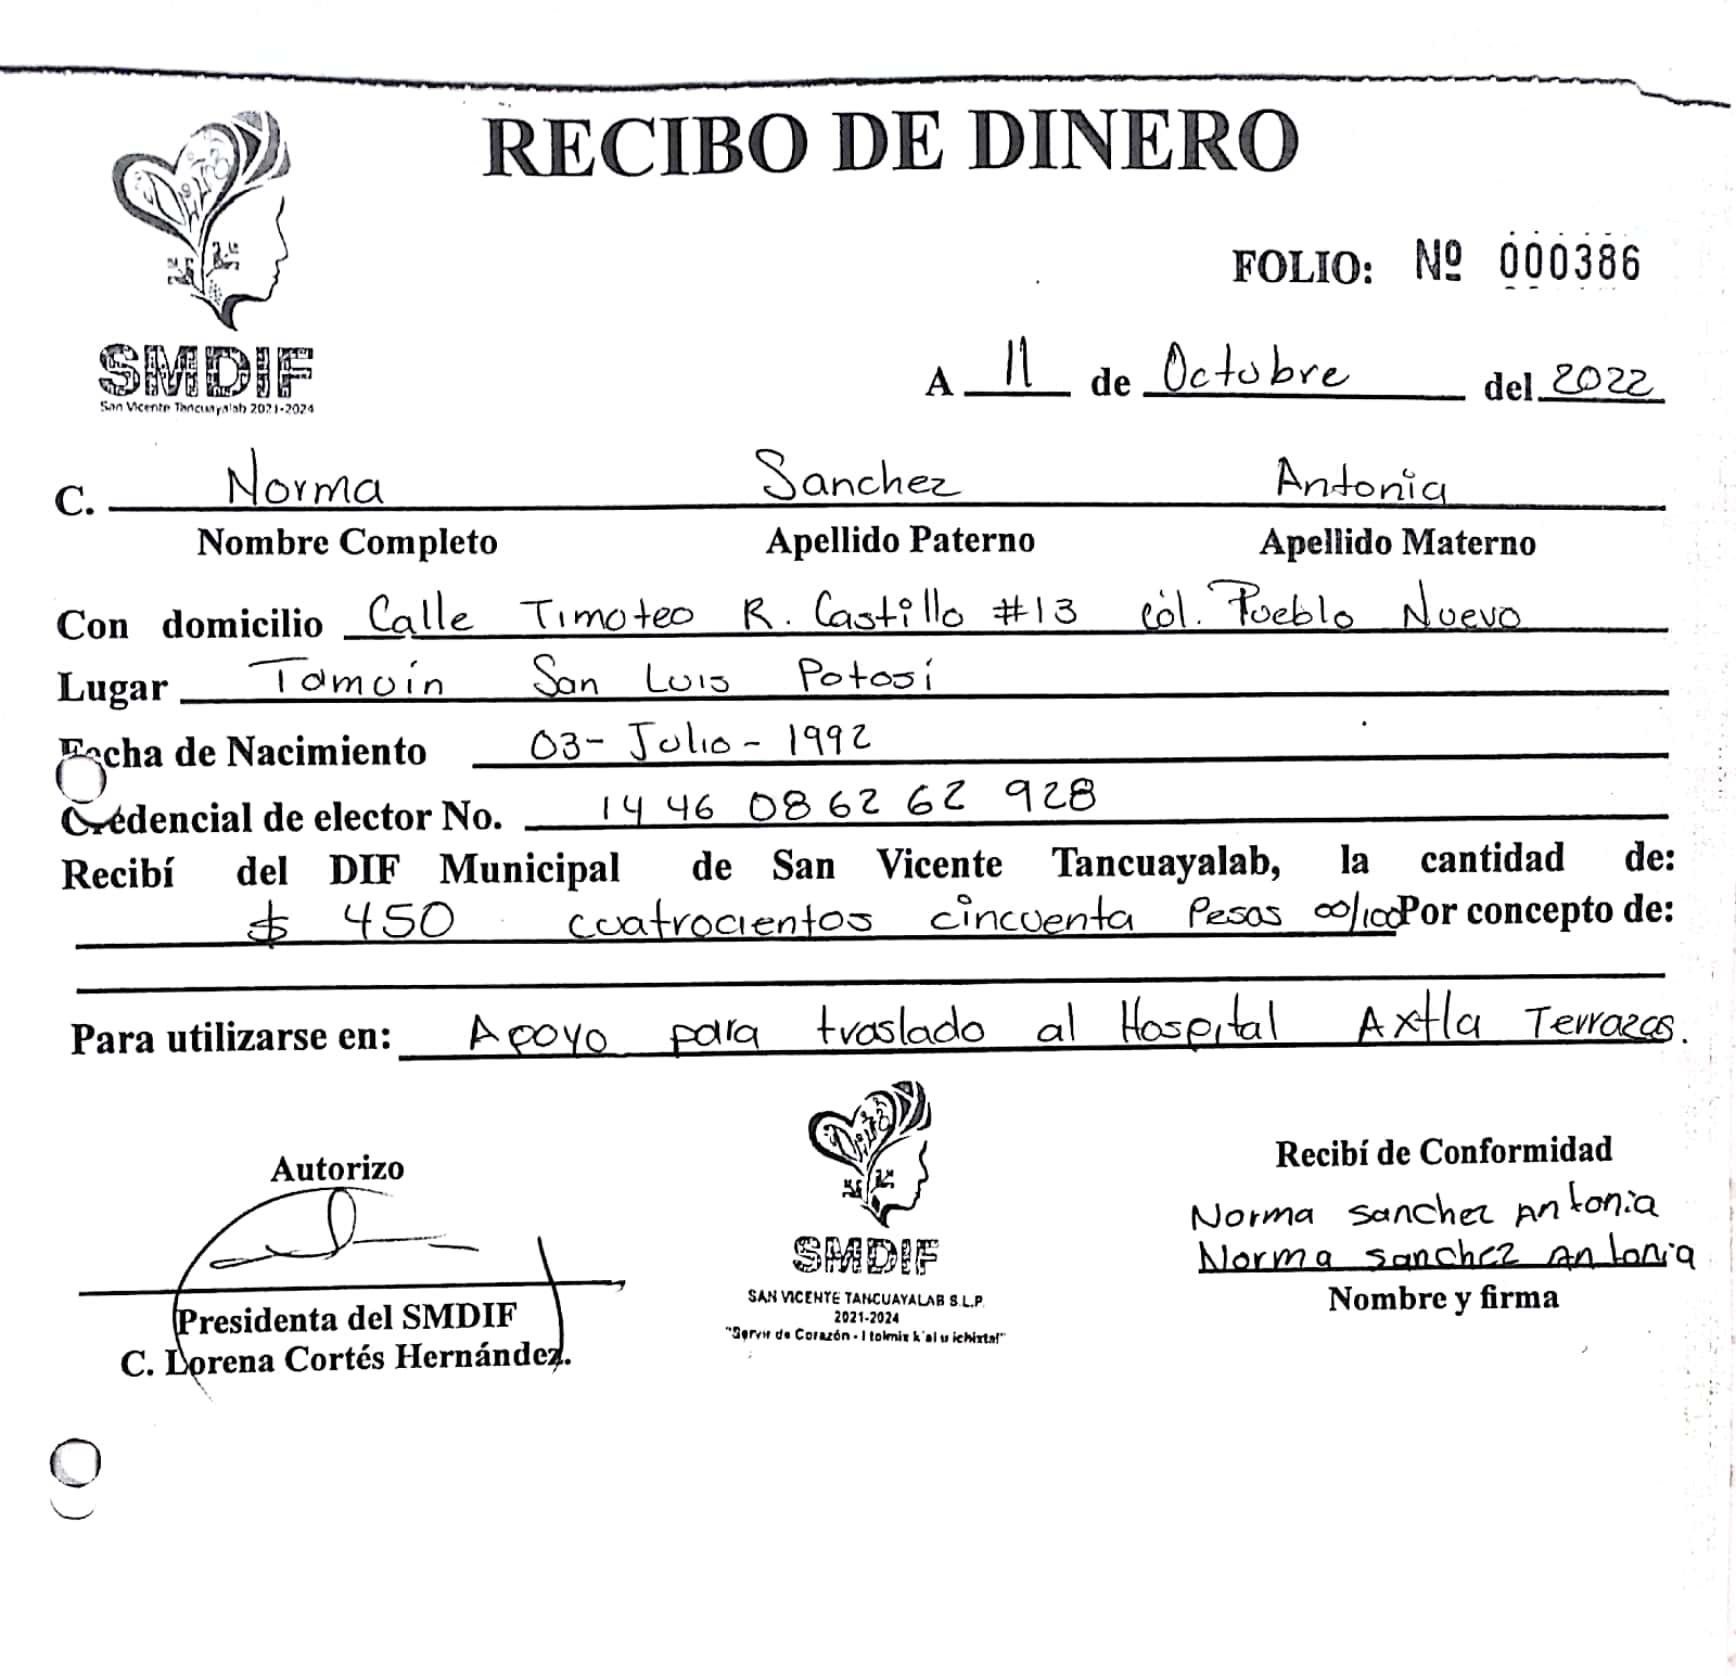 RECIBO DE DINERO
FOLIO: Nº 000386
SMDIF
San Vicente Tancuayalab 2021-2024
A 11 de Octubre del 2022
C. Norma Sanchez Antonia
Nombre Completo Apellido Paterno Apellido Materno
Con domicilio Calle Timoteo R. Castillo #13 Col. Pueblo Nuevo
Lugar Tamuín San Luis Potosí
Fecha de Nacimiento 03-Julio-1992
Credencial de elector No. 1446 08 62 62 928
Recibí del DIF Municipal de San Vicente Tancuayalab, la cantidad de:
$ 450 cuatrocientos cincuenta Pesos 00/100 Por concepto de:
Para utilizarse en: Apoyo para traslado al Hospital Axtla Terrazas.
Autorizo
Presidenta del SMDIF
C. Lorena Cortés Hernández.
SMDIF
SAN VICENTE TANCUAYALAB S.L.P.
2021-2024
"Servir de Corazón -
Recibí de Conformidad
Norma Sanchez Antonia
Norma Sanchez Antonia
Nombre y firma